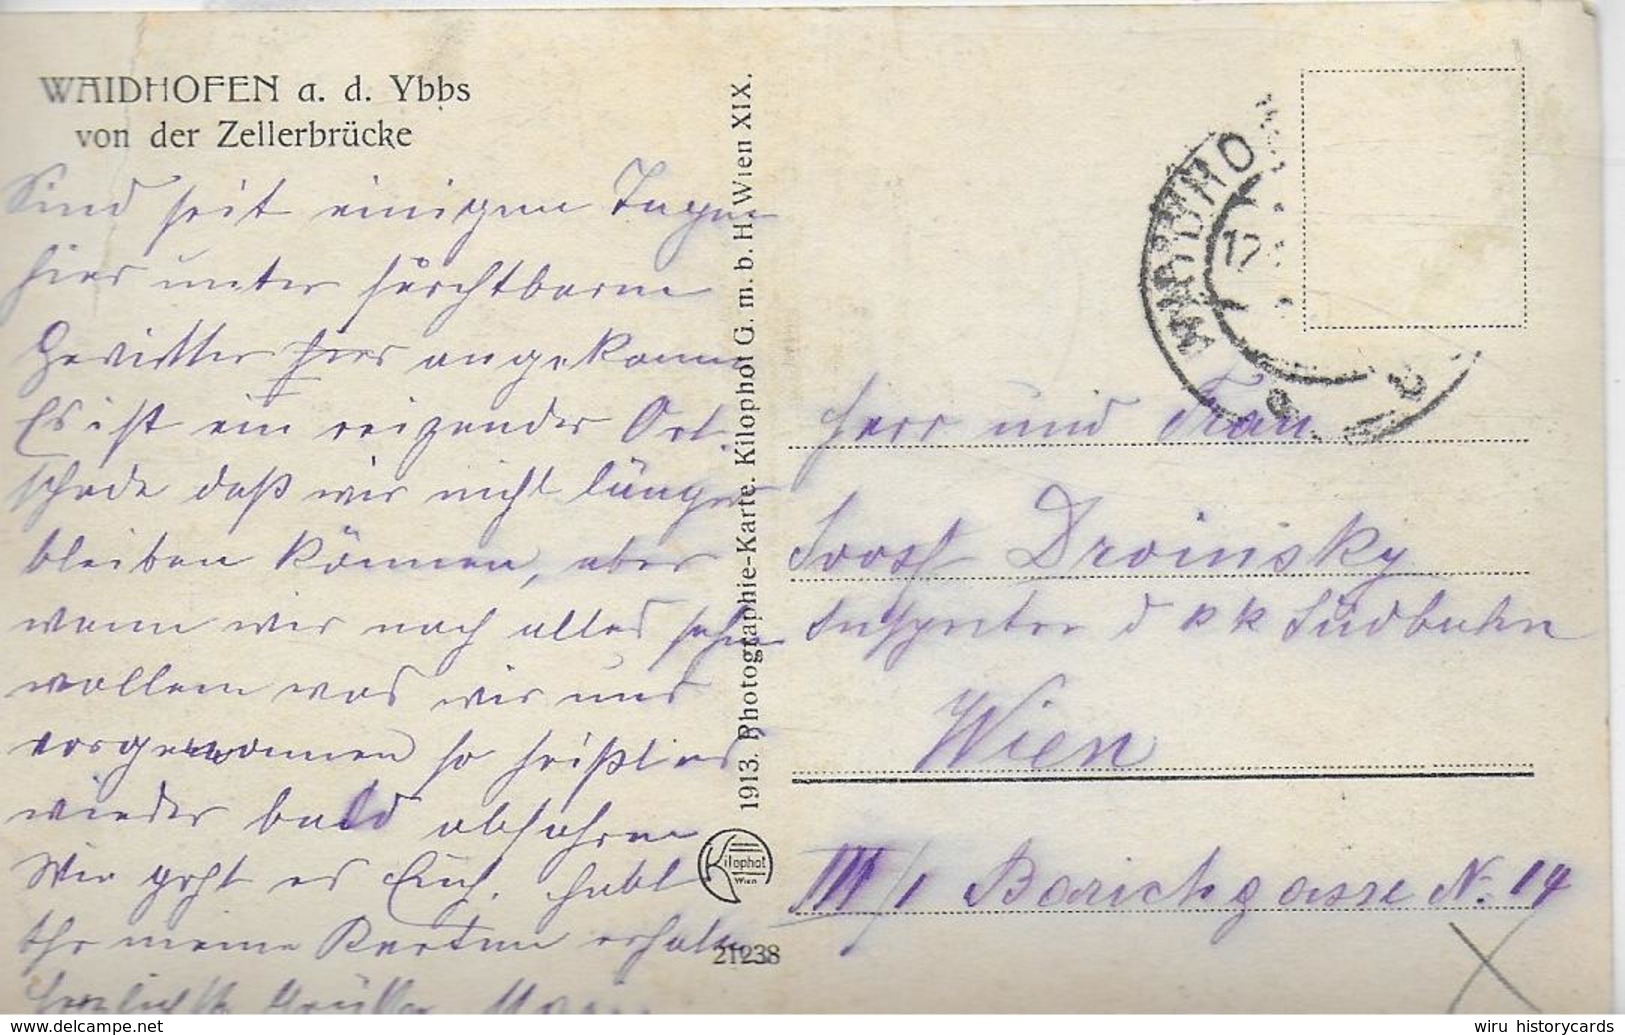 WAIDHOFEN a. d. Ybbs
von der Zellerbrücke
Sind seit einigen Tagen
hier unter furchtbaren
Gewitter hier angekommen
Es ist ein reizender Ort.
schade daß wir nicht länger
bleiben können, aber
wenn wir noch alles sehen
wollen was wir uns
vorgenommen so heißt es
wieder bald abfahren
Wie geht es Euch. habt
Ihr meine Karten erhalten
herzlichste Grüße
1913. Photographie-Karte. Kilophot G. m. b. H. Wien XIX.
Kilophot
Wien
21238
WAIDHO
Herr und Frau
Josef Droinsky
Inspektor d k k Südbahn
Wien
III/1 Barichgasse Nr. 14
wiru historycards
www.delcampe.net